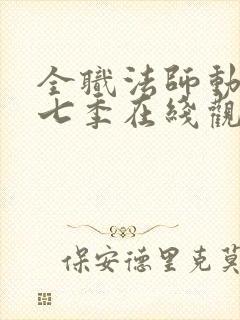 全職法師動
七季在綫觀
保安德里克莫